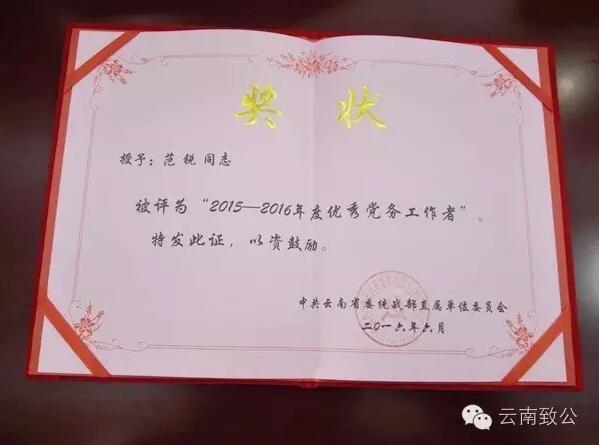 奖状
授予：范锐同志
被评为“2015—2016年度优秀党务工作者”。
特发此证，以资鼓励。
中共云南省委统战部直属单位委员会
二〇一六年六月
云南致公